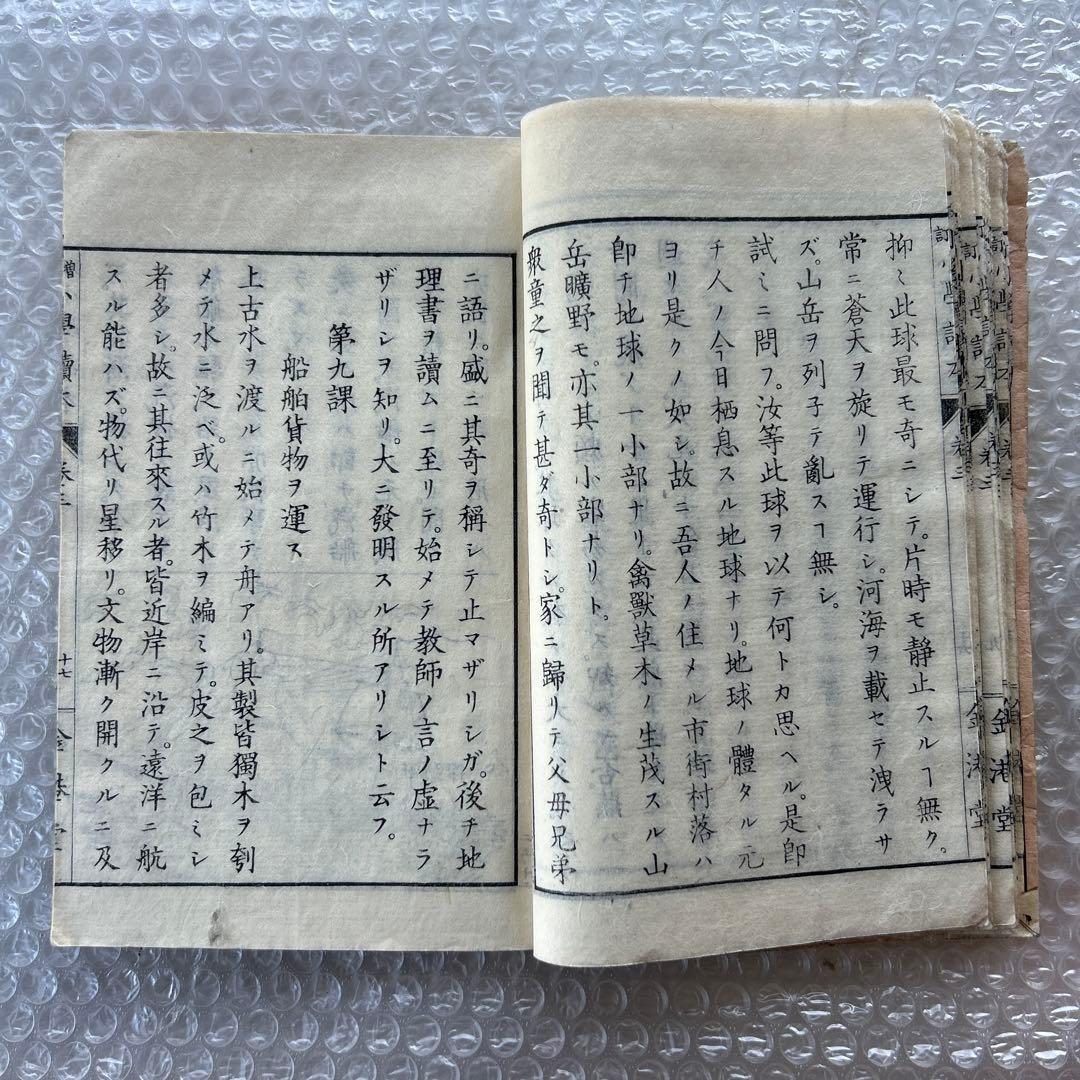 抑ミ此球最モ奇ニシテ。片時モ静止スルヿ無ク。
常ニ蒼天ヲ旋リテ運行シ。河海ヲ載セテ洩ラサ
ズ。山岳ヲ列子テ亂スヿ無シ。
試ミニ問フ。汝等此球ヲ以テ何トカ思ヘル。是卽
チ人ノ今日栖息スル地球ナリ。地球ノ體タル元
ヨリ是クノ如シ。故ニ吾人ノ住メル市街村落ハ
卽チ地球ノ一小部ナリ。禽獸草木ノ生茂スル山
岳曠野モ。亦其一小部ナリト。
衆童之ヲ聞テ甚ダ奇トシ。家ニ歸リテ父母兄弟
ニ語リ。盛ニ其奇ヲ稱シテ止マザリシガ。後チ地
理書ヲ讀ムニ至リテ。始メテ教師ノ言ノ虛ナラ
ザリシヲ知リ。大ニ發明スル所アリシト云フ。
第九課
船舶貨物ヲ運ス
上古水ヲ渡ルニ始メテ舟アリ。其製皆獨木ヲ刳
メテ水ニ泛ベ。或ハ竹木ヲ編ミテ。皮之ヲ包ミシ
者多シ。故ニ其往來スル者。皆近岸ニ沿テ。遠洋ニ航
スル能ハズ。物代リ星移リ。文物漸ク開クルニ及
小學讀本
卷三
十七
金港堂